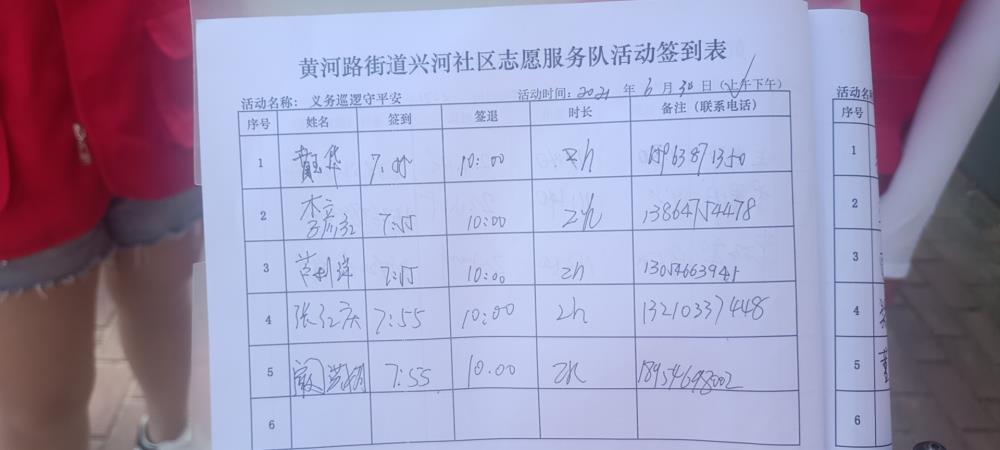 黄河路街道兴河社区志愿服务队活动签到表
活动名称： 义务巡逻守平安 活动时间：2021 年 6 月 30 日（上午下午）
序号 姓名 签到 签退 时长 备注（联系电话）
1 华 7:55 10:00 2h 15963871350
2 李彦红 7:55 10:00 2h 13864754478
3 7:55 10:00 2h 13054663941
4 张红庆 7:55 10:00 2h 13210337448
5 7:55 10.00 2h 18954698002
6
活动名
序号
1
2
3
4
5
6